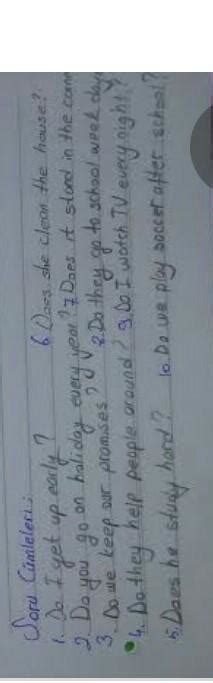 Soru Cümleleri:
1. Do I get up early? 6. Does she clean the house?
2. Do you go on holiday every year? 7. Does it stand in the
3. Do we keep our promises? 8. Do they go to school week days
4. Do they help people around? 9. Do I watch TV every night?
5. Does he study hard? 10. Do we play soccer after school?